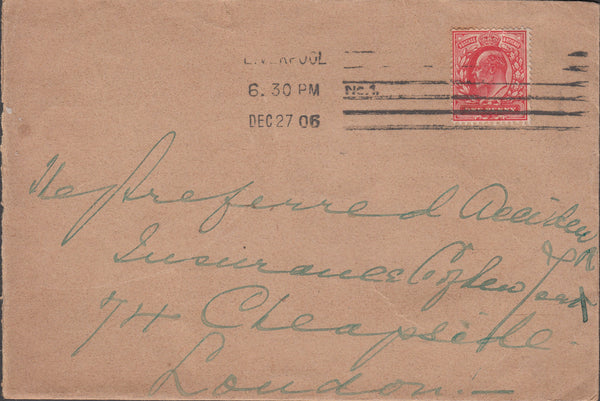 LIVERPOOL
6.30 PM No.1.
DEC 27 06
The Preferred Accident
Insurance Co of New York
74 Cheapside
London.—